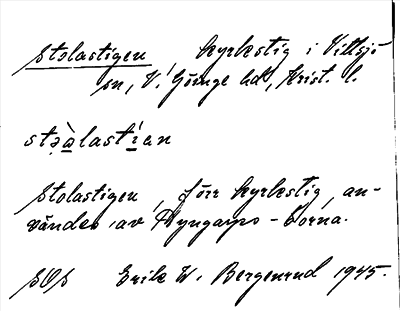 Stolastigen kyrkstig i Vittsjö
sn, V. Göinge hd, Krist. l.
stə̀alastían
Stolastigen, förr kyrkstig, an-
vändes av Ryngarps-borna.
SOS Erik W. Bergenrud 1945.